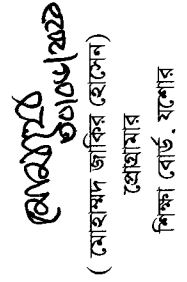 ৩০/০৮/২০২০
( মোহাম্মদ জাকির হোসেন)
প্রোগ্রামার
শিক্ষা বোর্ড, যশোর